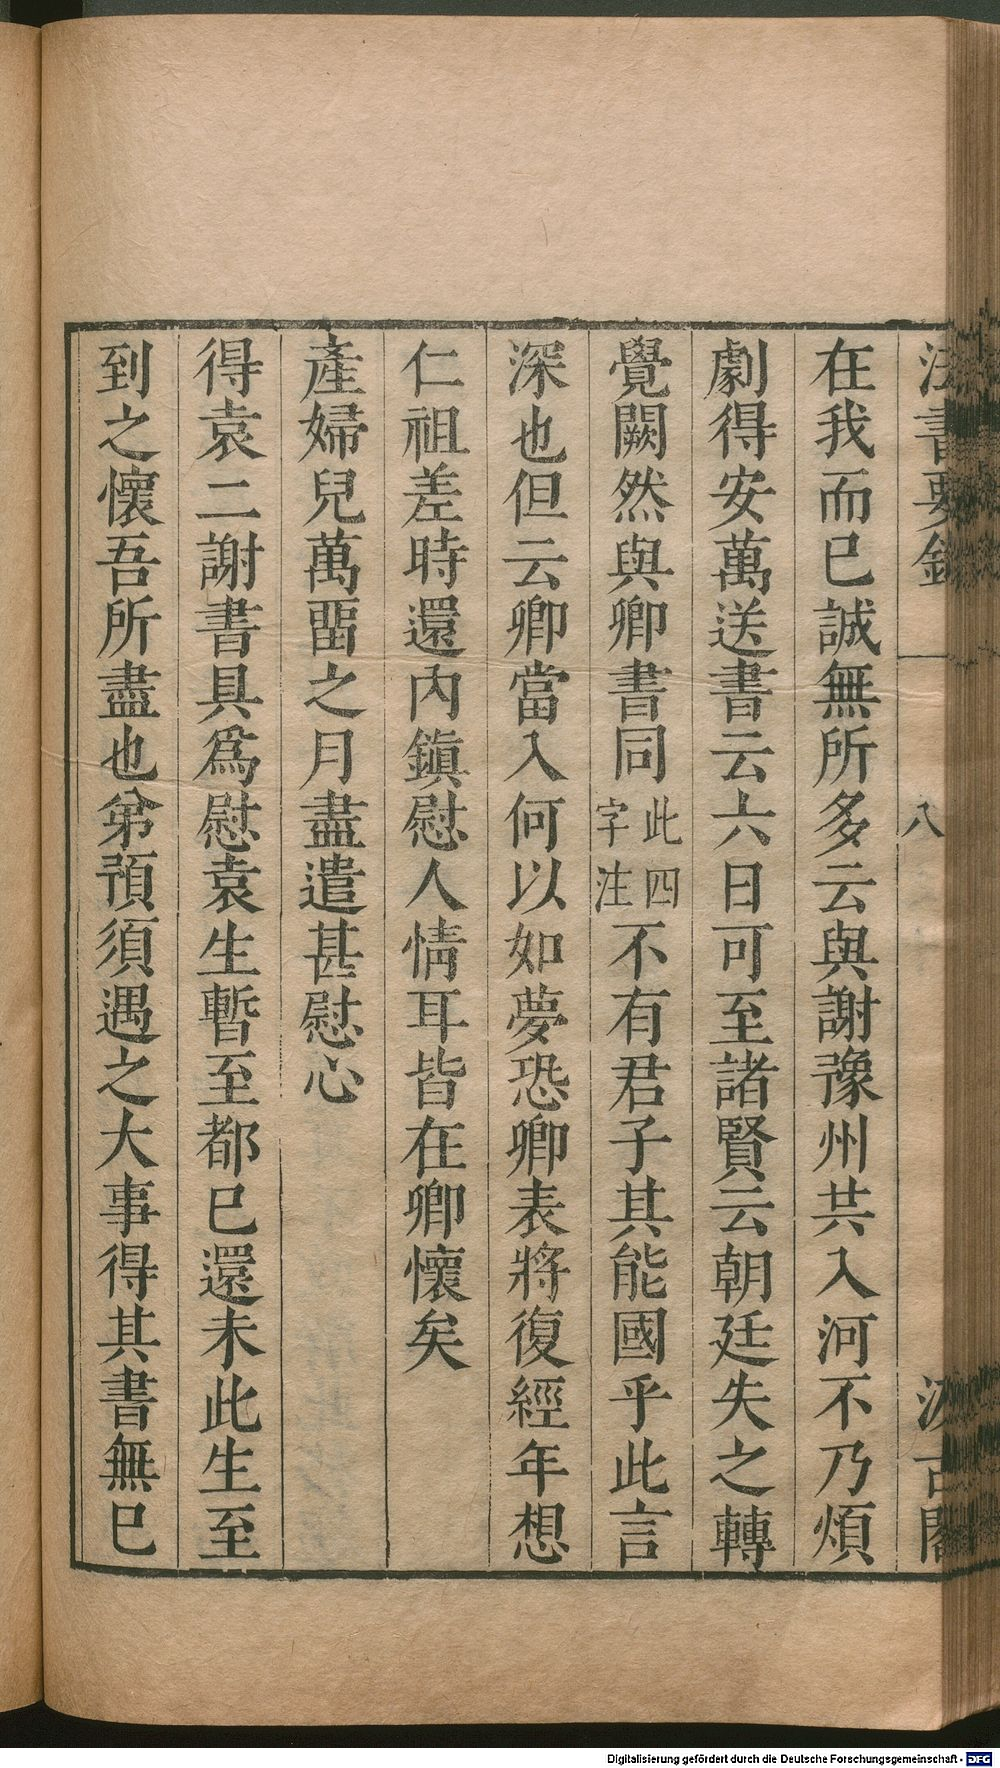 法書要錄 八 汲古閣
在我而已誠無所多云與謝豫州共入河不乃煩
劇得安萬送書云六日可至諸賢云朝廷失之轉
覺闕然與卿書同此四字注不有君子其能國乎此言
深也但云卿當入何以如夢恐卿表將復經年想
仁祖差時還內鎮慰人情耳皆在卿懷矣
產婦兒萬畱之月盡遣甚慰心
得袁二謝書具爲慰袁生暫至都巳還未此生至
到之懷吾所盡也弟預須遇之大事得其書無巳
Digitalisierung gefördert durch die Deutsche Forschungsgemeinschaft - DFG